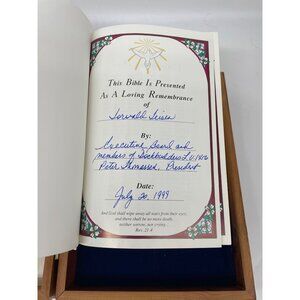 This Bible Is Presented
As A Loving Remembrance
of
Torvald
By:
Executive Board and
members of Dockbuilders L.U. 1456
Peter Thomassen, President
Date:
July 20, 1999
And God shall wipe away all tears from their eyes;
and there shall be no more death,
neither sorrow, nor crying...
Rev. 21:4